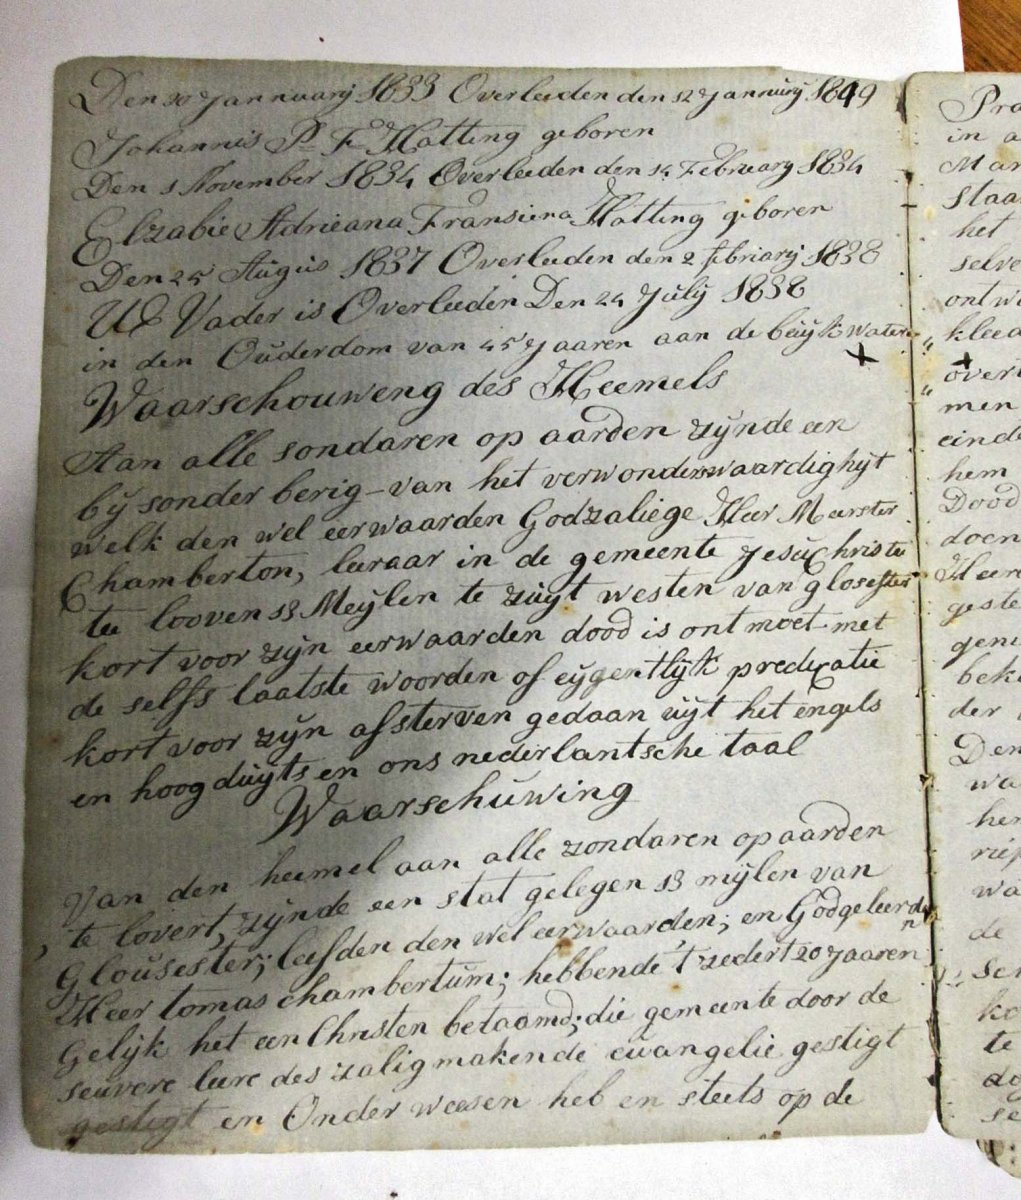 Den 20 Jannuarij 1833 Overleeden den 12 Jannuarij 1849
Johannis P. F. Hatting geboren
Den 1 November 1834 Overleeden den 14 February 1834
Elzabie Adrieana Fransiena Hatting geboren
Den 25 Augus 1837 Overleeden den 2 febriarij 1838
UE Vader is Overleeden Den 24 July 1838
in den Ouderdom van 45 Jaaren aan de
Waarschouweng des Heemels
Aan alle sondaren op aarden zijnde een
bij sonder berig van het verwonderswaardighijt
welk den wel eerwaarden Godzaliege Heer Meester
Chamberton, leeraar in de gemeente Jesu Christu
te loovens 13 Meijlen te zuijt westen van glosester
kort voor zijn eerwaarden dood is ontmoet met
de selfs laatste woorden of eijgentlijk predicatie
kort voor zijn afsterven gedaan uijt het engels
en hoog duijts en ons nederlantsche taal
Waarschuwing
Van den heemel aan alle zondaren op aarden
te lovert, zijnde een stat gelegen 13 mijlen van
Glousester; leefden den wel eerwaarden; en Godgeleerden
Heer tomas chambertum; hebbende 't zedert 20 Jaaren
Gelijk het een Christen betaamd; die gemeente door de
seuvere leere des zalig makende ewangelie gestigt
gestigt en Onder weesen heb en steets op de
Pra
in a
Mar
staa
het
selve
ontwa
klee
over
men
einde
hem
Dood
doen
Heere
geste
geni
beke
der
Den
wa
her
riep
wa
de
ser
ko
te
do
se